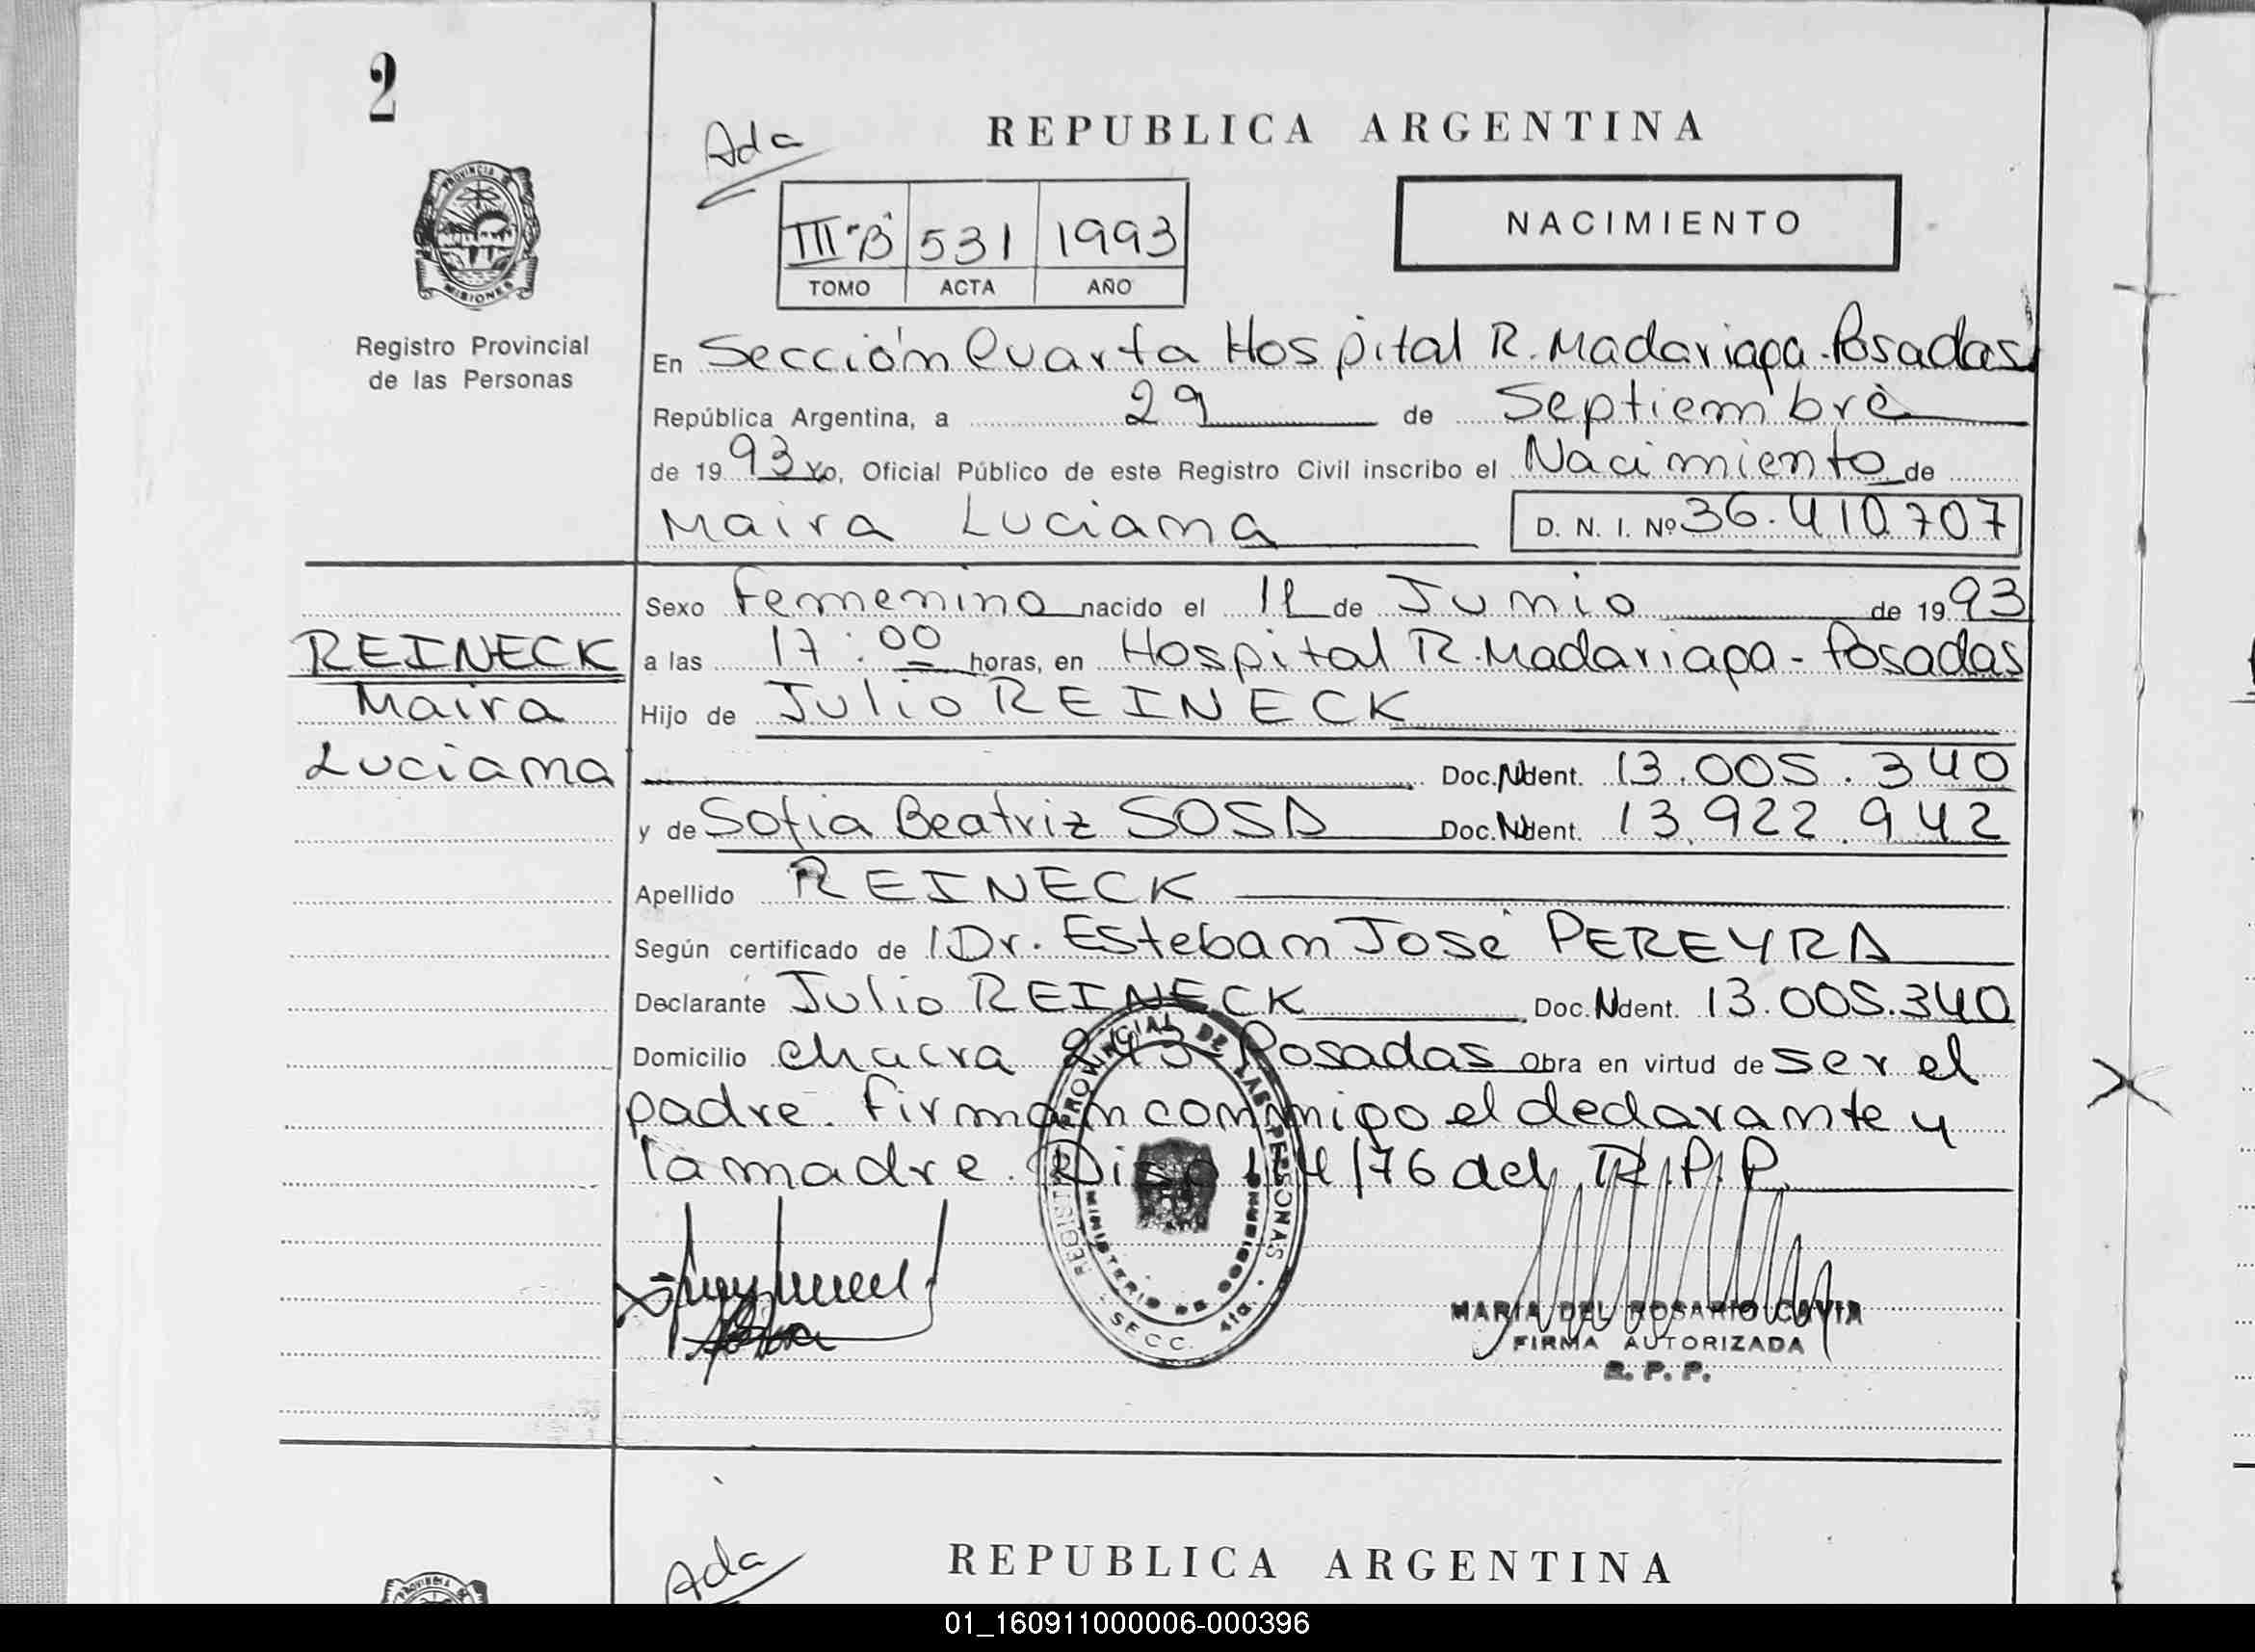 2
PROVINCIA DE
MISIONES
Registro Provincial
de las Personas
Ada
REPUBLICA ARGENTINA
NACIMIENTO
IIIºB 531 1993
TOMO ACTA AÑO
En Sección Cuarta Hospital R. Madariaga - Posadas
República Argentina, a 29 de Septiembre
de 1993 Yo, Oficial Público de este Registro Civil inscribo el Nacimiento de
Maira Luciana D. N. I. Nº 36.410.707
Sexo Femenino nacido el 11 de Junio de 1993
REINECK
Maira
Luciana
a las 17:00 horas, en Hospital R. Madariaga - Posadas
Hijo de Julio REINECK
Doc. Ident. 13.005.340
y de Sofia Beatriz SOSA Doc. Ident. 13.922.942
Apellido REINECK
Según certificado de Dr. Esteban José PEREYRA
Declarante Julio REINECK Doc. Ident. 13.005.340
Domicilio Chacra 243 - Posadas Obra en virtud de ser el
padre. Firman conmigo el declarante y
la madre. Disp 14/76 del R.P.P.
REGISTRO PROVINCIAL DE LAS PERSONAS
MINISTERIO DE GOBIERNO
SECC. 4ta.
MARIA DEL ROSARIO CAVIA
FIRMA AUTORIZADA
R. P. P.
Ada
REPUBLICA ARGENTINA
01_160911000006-000396